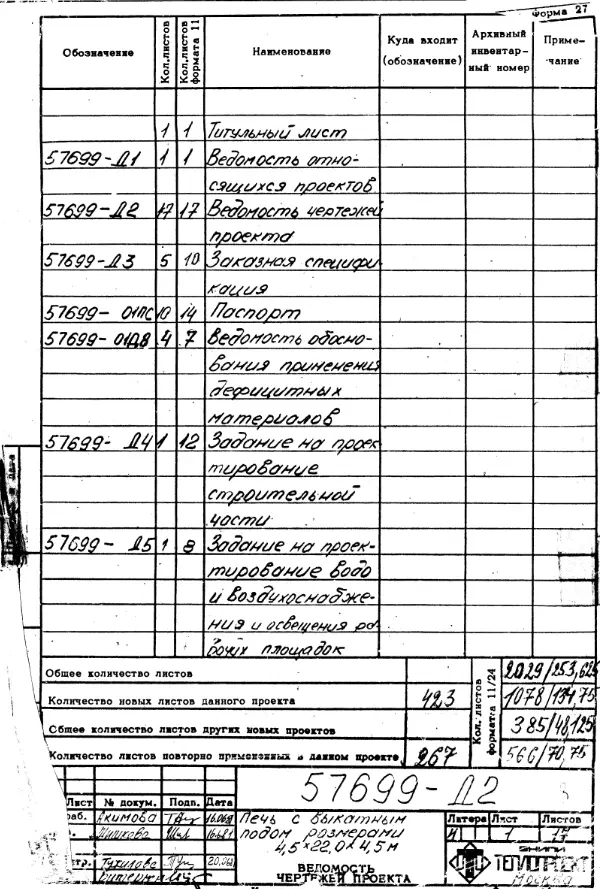 Форма 27
Обозначение Кол.листов Кол.листов формата 11 Наименование Куда входит (обозначение) Архивный инвентарный номер Приме-чание
1 1 Титульный лист
57699-Д1 1 1 Ведомость отно-
сящихся проектов
57699-Д2 17 17 Ведомость чертежей
проекта
57699-Д3 5 10 Заказная специфи
кация
57699-01ПС 10 14 Паспорт
57699-01Д8 4 7 Ведомость обосно-
вания применения
дефицитных
материалов
57699-Д4 1 12 Задание на проек
тирование
строительной
части
57699-Д5 1 8 Задание на проек-
тирование водо
и воздухоснабже-
ния и освещения ра
бочих площадок
Общее количество листов
Кол. листов формата 11/24
2029/253,625
Количество новых листов данного проекта 423 1078/134,75
Общее количество листов других новых проектов 385/48,125
Количество листов повторно примененных в данном проекте 267 566/70,75
57699-Д2
Лист № докум. Подп. Дата
Акимова
Печь с выкатным
подом размерами
4,5×22,0×4,5м
Литера Лист Листов
И 1 17
20.06
ВЕДОМОСТЬ
ЧЕРТЕЖЕЙ ПРОЕКТА
ВНИПИ
ТЕПЛОПРОЕКТ
Москва